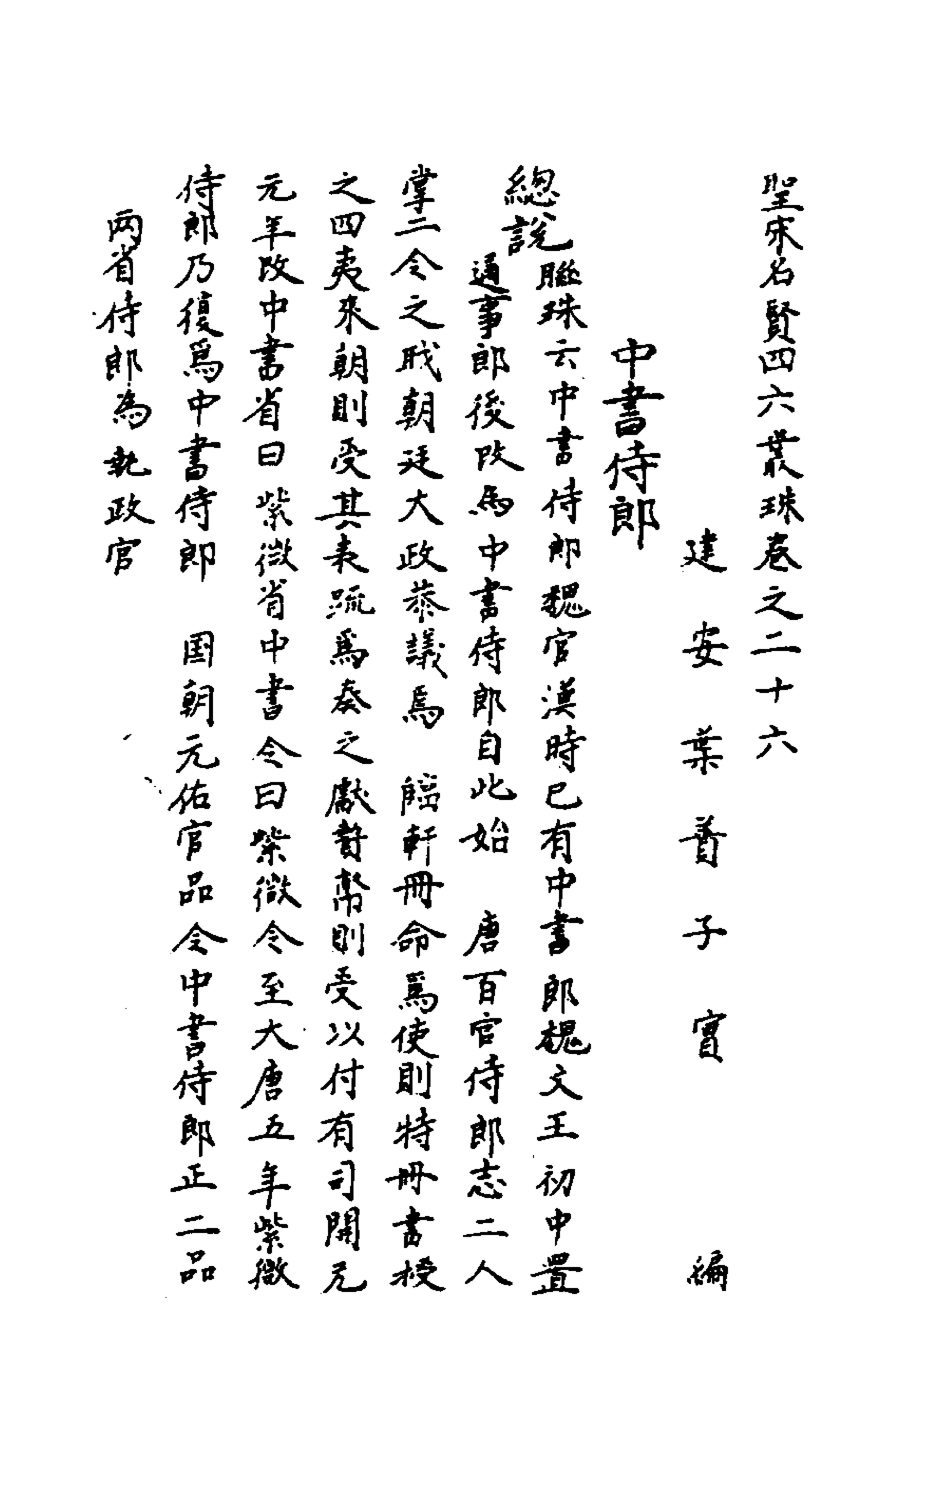 聖宋名賢四六叢珠卷之二十六
建安葉蕡子實編
中書侍郎
總說
聮珠云中書侍郎魏官漢時已有中書郎魏文王初中置
通事郎後改為中書侍郎自此始 唐百官侍郎志二人
掌二令之職朝廷大政叅議焉 臨軒冊命爲使則特冊書授
之四夷来朝則受其表疏爲奏之獻贄幣則受以付有司開元
元年改中書省曰紫微省中書令曰紫微令至大唐五年紫微
侍郎乃復爲中書侍郎 国朝元佑官品令中書侍郎正二品
两省侍郎為執政官